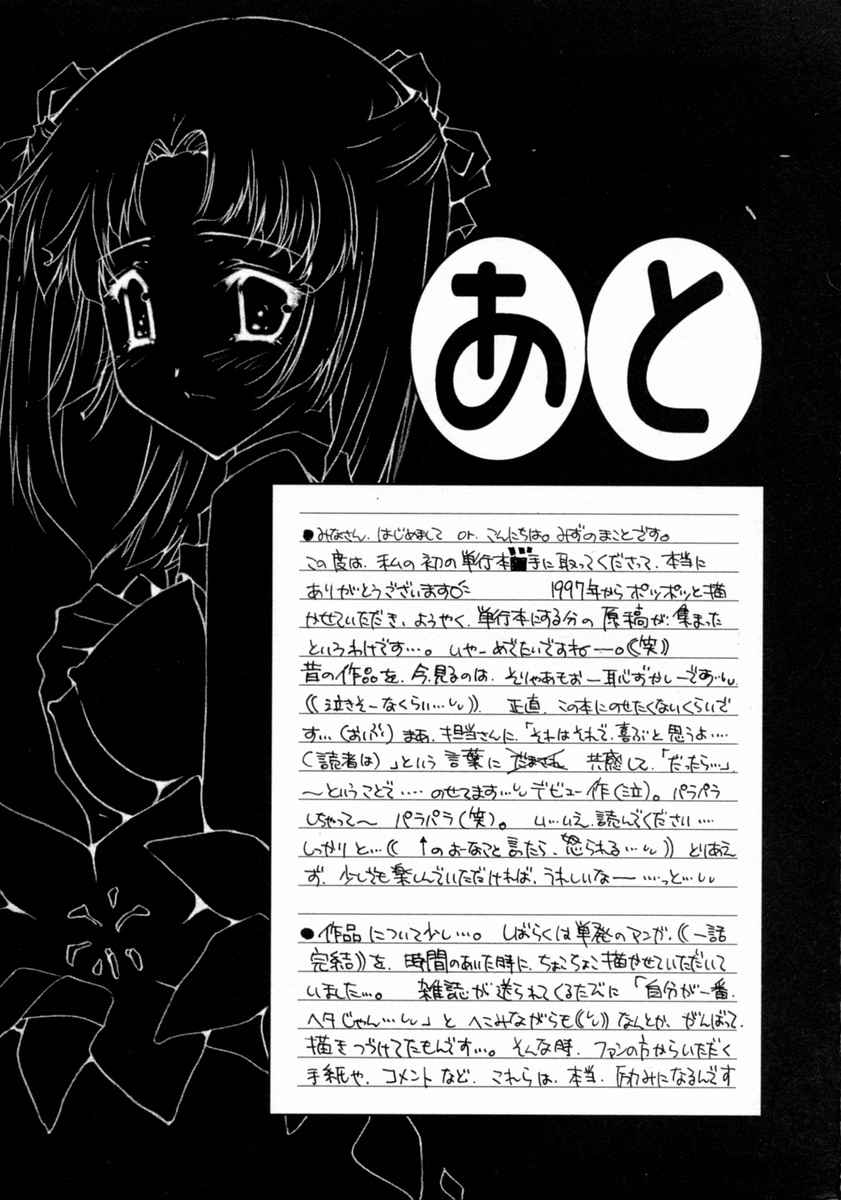 あと
●みなさん、はじめまして or. こんにちは。みずのまことです。
この度は、私の初の単行本手に取ってくださって、本当に
ありがとうございます 1997年からポツポツと描
かせていただき、ようやく、単行本にする分の原稿が、集まった
というわけです…。いやーめでたいですねー。((笑))
昔の作品を、今、見るのは、そりゃあもおー恥ずかしーです…
((泣きそーなくらい…))。正直、この本にのせたくないくらいで
す…(おいぶ) まあ、担当さんに、「それはそれで、喜ぶと思うよ…
(読者は)」という言葉に 共感して、「だったら…」、
〜ということで‥‥のせてます…デビュー作(泣)。パラパラ
しちゃって〜 パラパラ(笑)。い…いえ、読んでください‥‥
しっかりと…(( ↑のよーなこと言たら、怒られる…)) とりあえ
ず、少しでも楽しんでいただければ、うれしいなー‥‥っと…
●作品について少し…。しばらくは単発のマンガ、((一話
完結))を、時間のあいた時に、ちょこちょこ描かせていただいて
いました…。雑誌が送られてくるたびに「自分が一番、
ヘタじゃん…」と へこみながらも(())なんとか、がんばって、
描きつづけてたもんです…。そんな時、ファンの方からいただく
手紙や、コメントなど、これらは、本当、励みになるんです